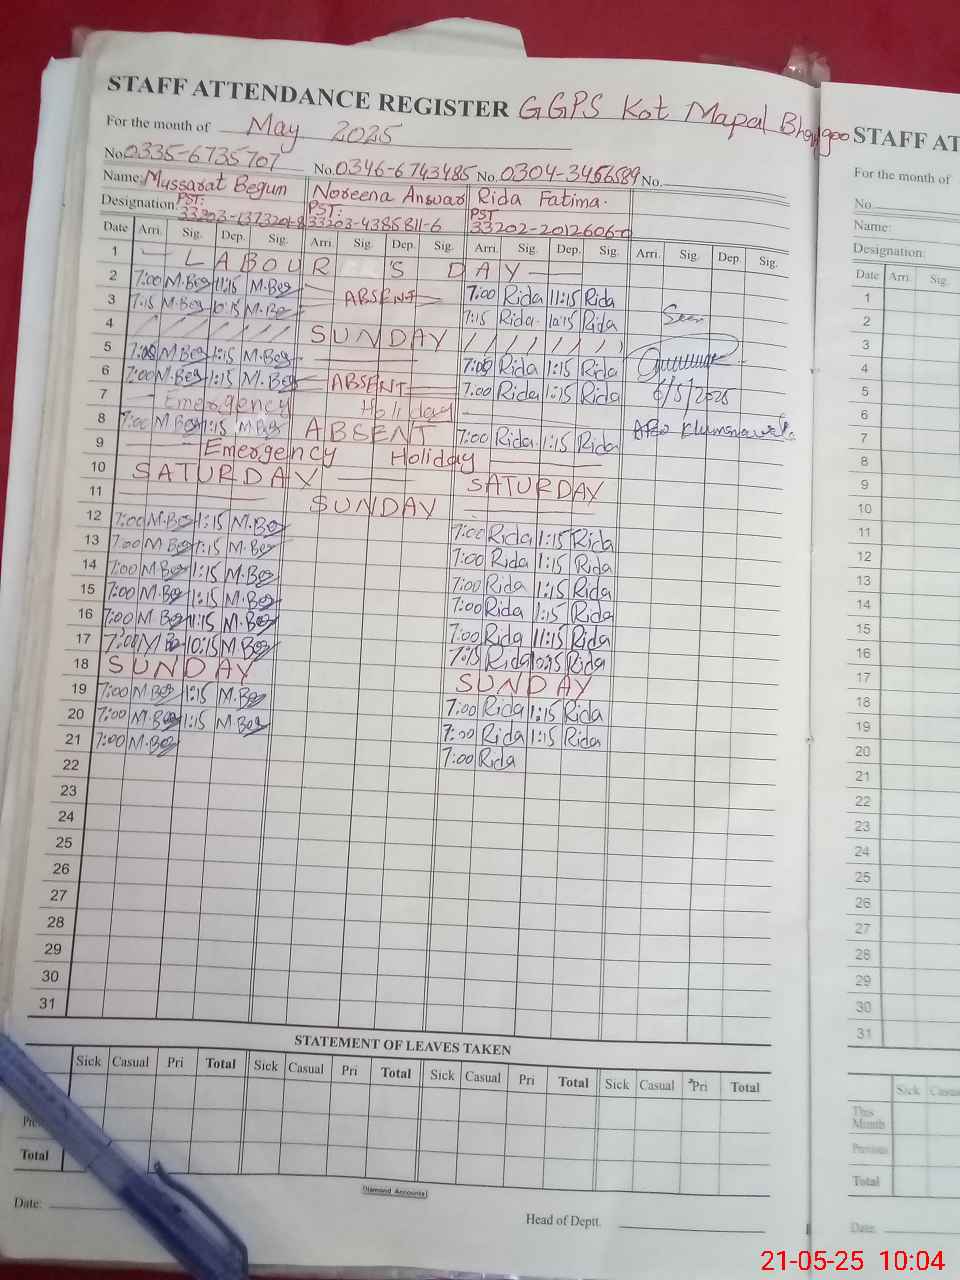 STAFF ATTENDANCE REGISTER GGPS Kot Mapal
For the month of May 2025
No. 0335-6735707 No. 0346-6743485 No. 0304-3466589 No.
Name: Mussarat Begum Noreena Answar Rida Fatima.
Designation: PST: PST: PST
33203-4385811-6 33202-2012606-0
Date Arri. Sig. Dep. Sig. Arri. Sig. Dep. Sig. Arri. Sig. Dep. Sig. Arri. Sig. Dep. Sig.
1 LABOUR'S DAY
2 7:00 M.Beg 11:15 M.Beg ABSENT 7:00 Rida 11:15 Rida
3 7:15 M.Beg 10:15 M.Be 7:15 Rida 10:15 Rida Seen
4 SUNDAY
5 7:00 M.Beg 1:15 M.Beg 7:00 Rida 1:15 Rida
6 7:00 M.Beg 1:15 M.Beg ABSENT 7:00 Rida 1:15 Rida 6/5/2025
7 Emergency Holiday
8 7:00 M.Beg 1:15 M.Beg ABSENT 7:00 Rida 1:15 Rida
9 Emergency Holiday
10 SATURDAY SATURDAY
11 SUNDAY
12 7:00 M.Beg 1:15 M.Beg 7:00 Rida 1:15 Rida
13 7:00 M.Beg 1:15 M.Beg 7:00 Rida 1:15 Rida
14 7:00 M.Beg 1:15 M.Beg 7:00 Rida 1:15 Rida
15 7:00 M.Beg 1:15 M.Beg 7:00 Rida 1:15 Rida
16 7:00 M.Beg 11:15 M.Beg 7:00 Rida 11:15 Rida
17 7:00 M B 10:15 M Beg 7:15 Rida 10:15 Rida
18 SUNDAY SUNDAY
19 7:00 M.Beg 1:15 M.Beg 7:00 Rida 1:15 Rida
20 7:00 M.Beg 1:15 M.Beg 7:00 Rida 1:15 Rida
21 7:00 M.Beg 7:00 Rida
22
23
24
25
26
27
28
29
30
31
STATEMENT OF LEAVES TAKEN
Sick Casual Pri Total Sick Casual Pri Total Sick Casual Pri Total Sick Casual Pri Total
Total
Diamond Accounts
Date: Head of Deptt.
STAFF AT
For the month of
No.
Name:
Designation:
Date Arri. Sig.
1
2
3
4
5
6
7
8
9
10
11
12
13
14
15
16
17
18
19
20
21
22
23
24
25
26
27
28
29
30
31
Sick
This Month
Previous
Total
Date:
21-05-25 10:04